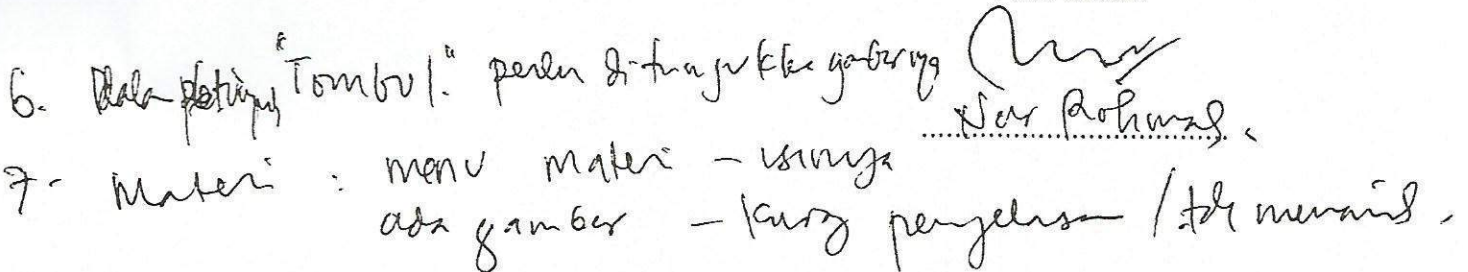 6. Dalam petunjuk "Tombol." perlu ditunjukkan gambarnya
Nur Rohmad.
7- Materi : menu materi - isinya
ada gambar - kurg penjelasan / tdk menarik.